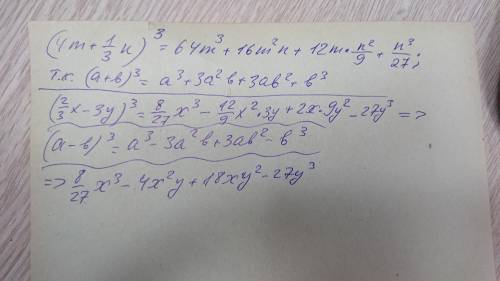 (4m+1/3 n)³ = 64m³+16m²n+12m·n²/9+n³/27;
т.к. (a+b)³ = a³+3a²b+3ab²+b³
(2/3 x-3y)³ = 8/27 x³-12/9 x²·3y+2x·9y²-27y³ =>
(a-b)³ = a³-3a²b+3ab²-b³
=> 8/27 x³-4x²y+18xy²-27y³